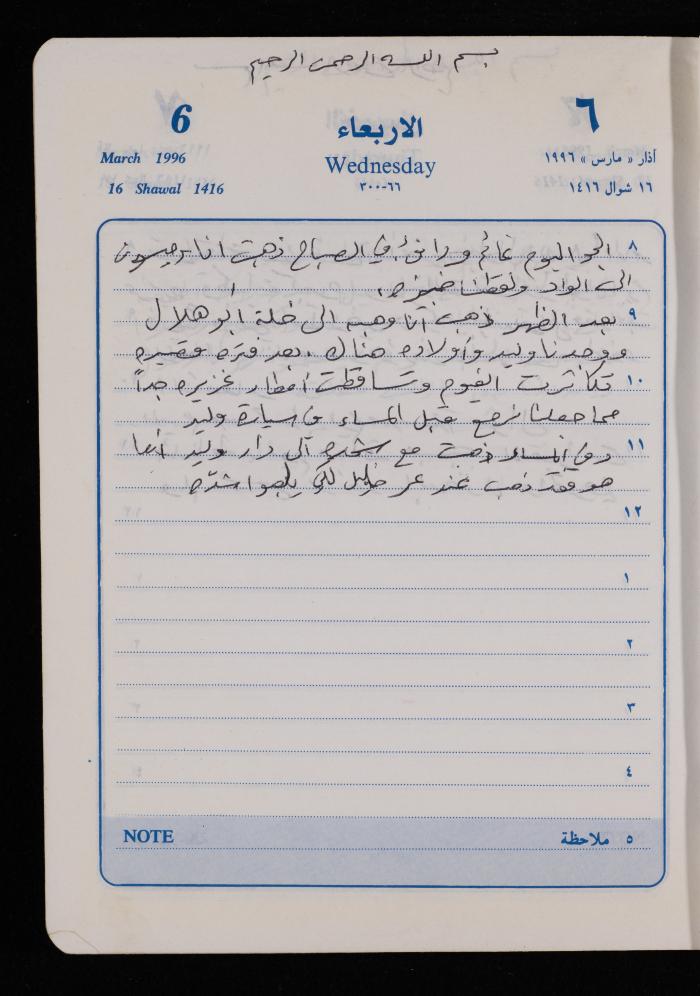 بسم الله الرحمن الرحيم
6 ٦
الاربعاء
March 1996 Wednesday آذار « مارس » ١٩٩٦
16 Shawal 1416 ٦٦-٣٠٠ ١٦ شوال ١٤١٦
٨ الجو اليوم غائم ودافئ، في الصباح ذهبت انا
الى الواد ولقطنا خبيزه.
٩ بعد الظهر ذهبت أنا وهبه الى خلة ابو هلال
ووجدنا وليد وأولاده هناك. بعد فتره قصيره
١٠ تكاثرت الغيوم وتساقطت أمطار غزيره جداً
مما جعلنا نرجع قبل المساء في سيارة وليد
١١ وفي المساء ذهبت مع الى دار وليد أما
هو فقد ذهب عند عمر خليل لكي يلعبوا شدّه
١٢
١
٢
٣
٤
NOTE ٥ ملاحظة